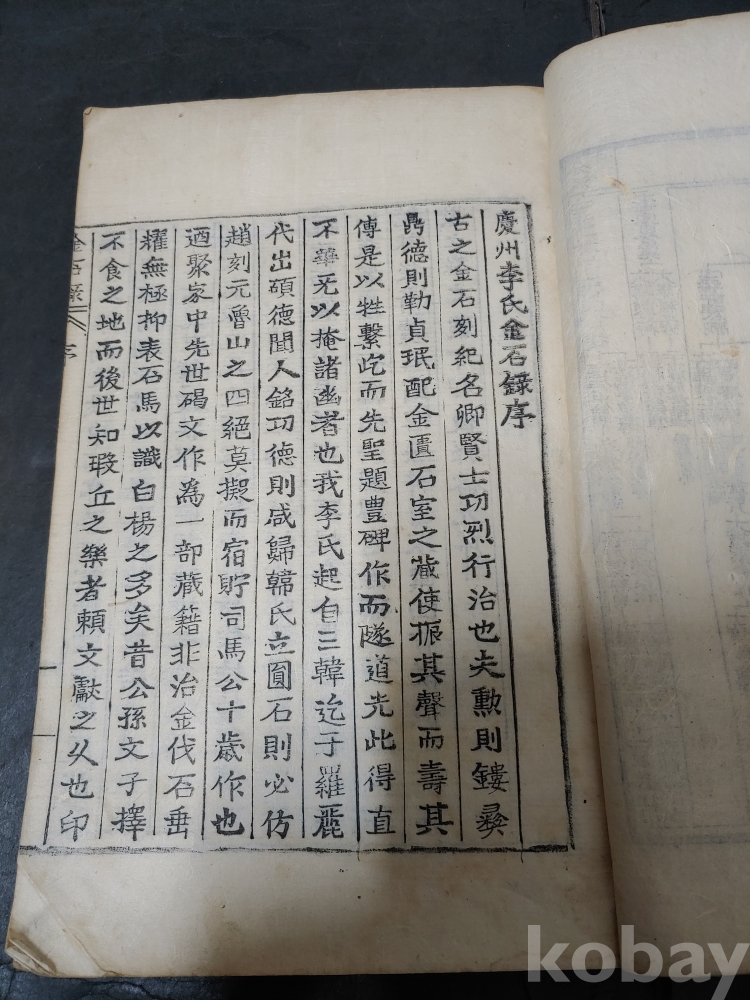 慶州李氏金石錄序
古之金石刻紀名卿賢士功烈行治也夫勲則鏤彜
鼎德則勒貞珉配金匱石室之藏使振其聲而壽其
傳是以牲繫訖而先聖題豊碑作而隧道光此得直
不華无以掩諸幽者也我李氏起自三韓迄于羅麗
代出碩德聞人銘功德則咸歸韓氏立圓石則必仿
趙刻元魯山之四絕莫擬而宿貯司馬公十歲作也
迺聚家中先世碣文作為一部藏籍非治金伐石垂
耀無極抑表石馬以識白楊之多矣昔公孫文子擇
不食之地而後世知瑕丘之樂者賴文獻之以也印
金石錄 序
kobay